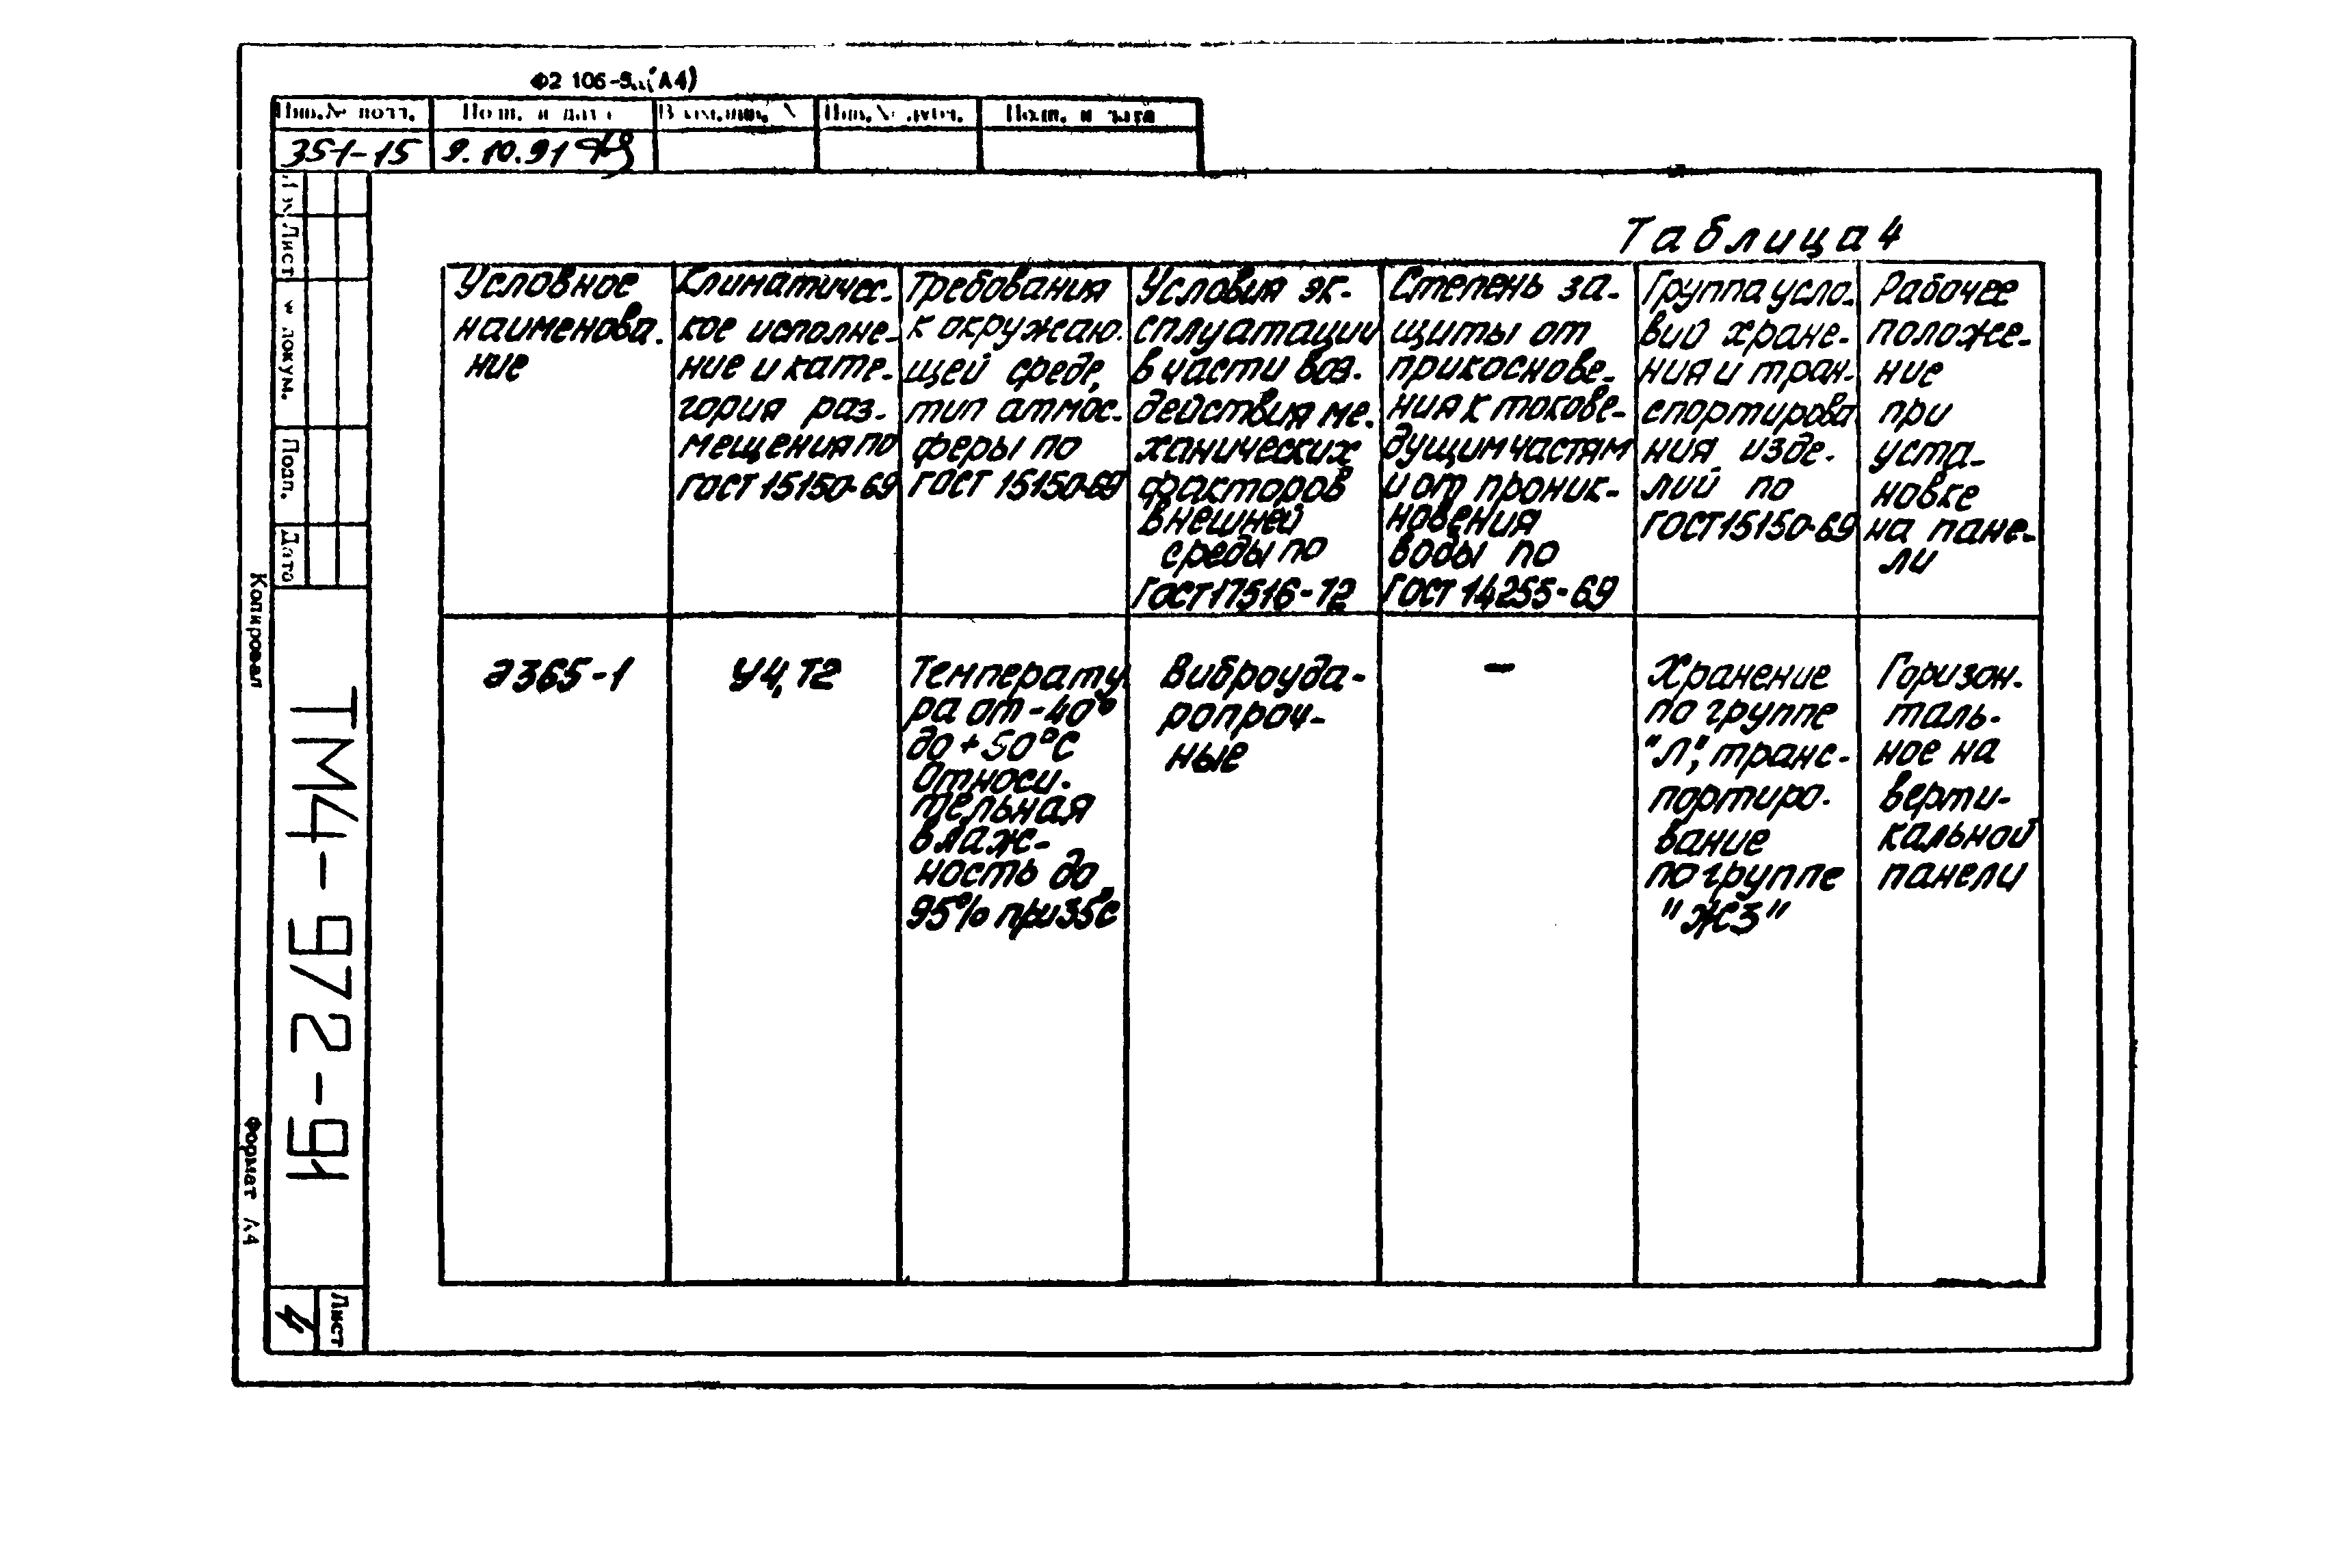 Ф2 106-5 (А4)
Инв.№ подл. Подп. и дата Взам.инв. № Инв.№ дубл. Подп. и дата
351-15 9.10.91
Таблица 4
Условное
наименова-
ние
Климатичес-
кое исполне-
ние и кате-
гория раз-
мещения по
ГОСТ 15150-69
Требования
к окружаю-
щей среде,
тип атмос-
феры по
ГОСТ 15150-69
Условия эк-
сплуатации
в части воз-
действия ме-
ханических
факторов
внешней
среды по
ГОСТ 17516-72
Степень за-
щиты от
прикоснове-
ния к токове-
дущим частям
и от проник-
новения
воды по
ГОСТ 14255-69
Группа усло-
вий хране-
ния и тран-
спортирова
ния изде-
лий по
ГОСТ 15150-69
Рабочее
положе-
ние
при
уста-
новке
на пане-
ли
Э365-1
У4, Т2
Температу
ра от -40°
до +50°С
Относи-
тельная
влаж-
ность до
95% при 35°С
Виброуда-
ропроч-
ные
-
Хранение
по группе
"Л", транс-
портиро-
вание
по группе
"Ж3"
Горизон-
таль-
ное на
верти-
кальной
панели
Лист
№ докум.
Подп.
Дата
ТМ4-972-91
Лист
4
Копировал
Формат А4